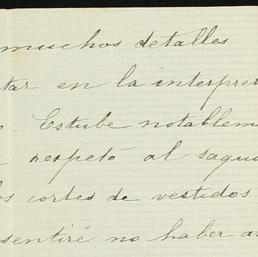 muchos detalles
tar en la interpre
Estube notablem
respetó al saqu
os cortes de vestidos
sentiré no haber a